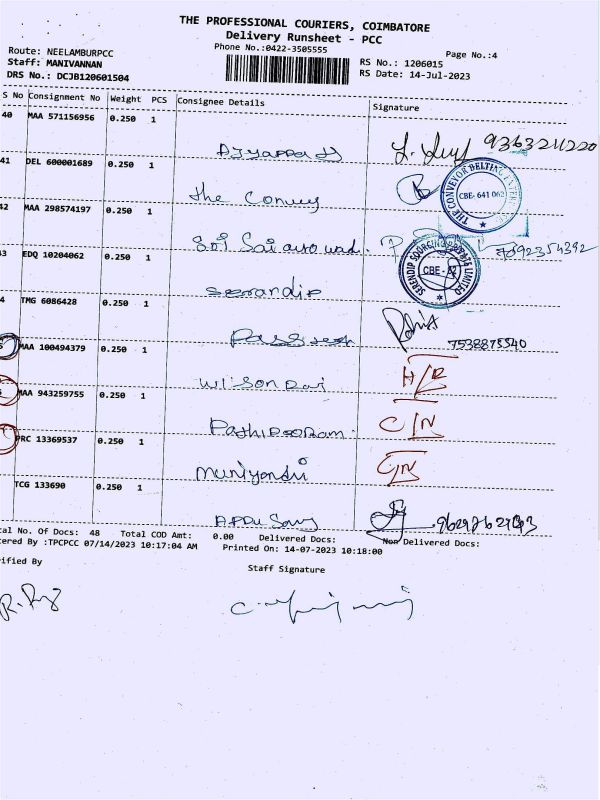 THE PROFESSIONAL COURIERS, COIMBATORE
Delivery Runsheet - PCC
Phone No.:0422-3505555
Page No.:4
Route: NEELAMBURPCC
Staff: MANIVANNAN
DRS No.: DCJB120601504
RS No.: 1206015
RS Date: 14-Jul-2023
S No Consignment No Weight PCS Consignee Details Signature
40 MAA 571156956 0.250 1
41 DEL 600001689 0.250 1
the Convey
THE CONVEYOR BELTING
CBE- 641 062
42 MAA 298574197 0.250 1
Sri Sai auto wad.
7092354392
3 EDQ 10204062 0.250 1
serandip
SERENDIP SOURCING PRIVATE LIMITED
CBE - 62
4 TMG 6086428 0.250 1
7538875540
MAA 100494379 0.250 1
wilson Raj
MAA 943259755 0.250 1
C/N
PRC 13369537 0.250 1
muniyandi
TCG 133690 0.250 1
tal No. Of Docs: 48 Total COD Amt: 0.00 Delivered Docs: Non Delivered Docs:
tered By :TPCPCC 07/14/2023 10:17:04 AM Printed On: 14-07-2023 10:18:00
ified By
Staff Signature